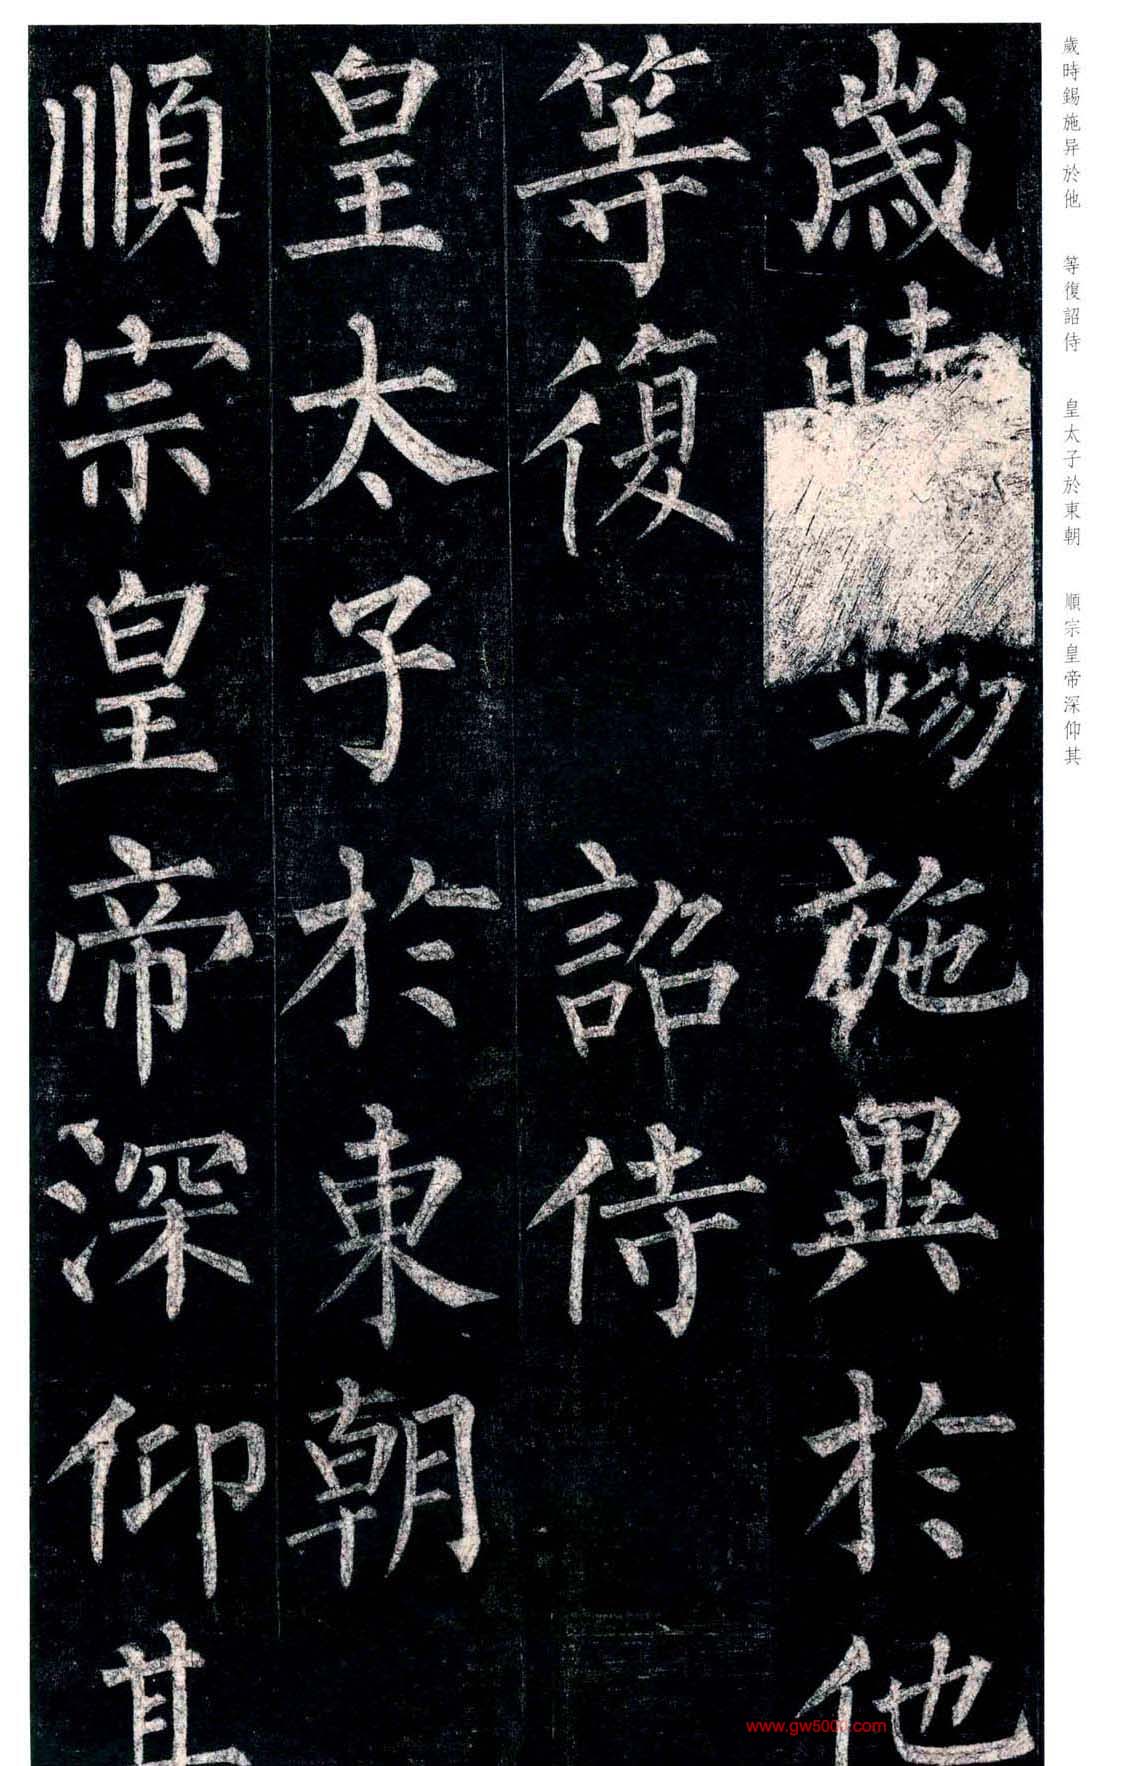 歲時錫施異於他
等復詔侍
皇太子於東朝
順宗皇帝深仰其
歲時錫施异於他　等復詔侍　皇太子於東朝　順宗皇帝深仰其
www.gw5000.com